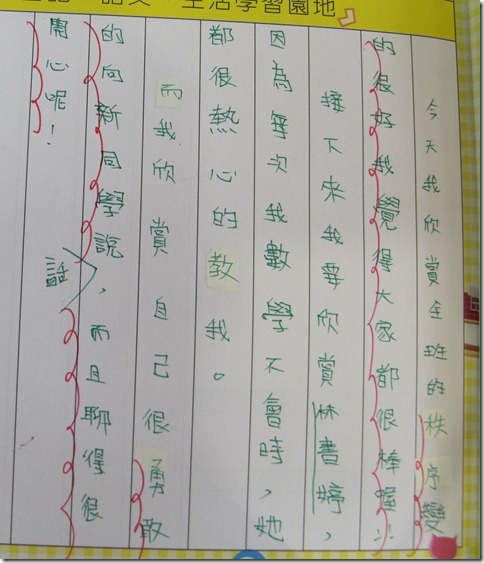 生活學習園地
今天我欣賞全班的秩序變
的很好我覺得大家都很棒喔!!
接下來我要欣賞林書婷，
因為每次我數學不會時，她
都很熱心的教我。
而我欣賞自己很勇敢
的向新同學說話，而且聊得很
開心呢！